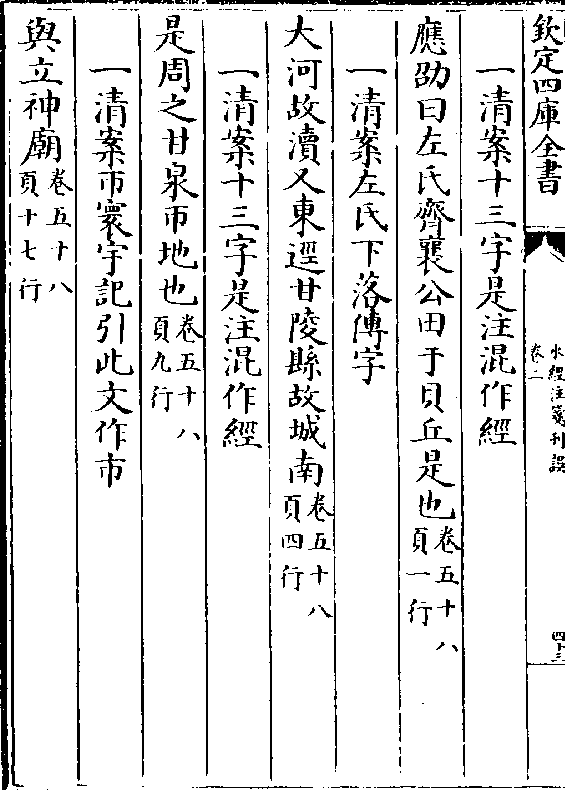 欽定四庫全書
水經注箋刊誤
卷二
四十三
一清案十三字是注混作經
應劭曰左氏齊襄公田于貝丘是也卷五十八
頁一行
一清案左氏下落傳字
大河故瀆又東逕甘陵縣故城南卷五十八
頁四行
一清案十三字是注混作經
是周之甘泉帀地也卷五十八
頁九行
一清案帀寰宇記引此文作市
與立神廟卷五十八
頁十七行